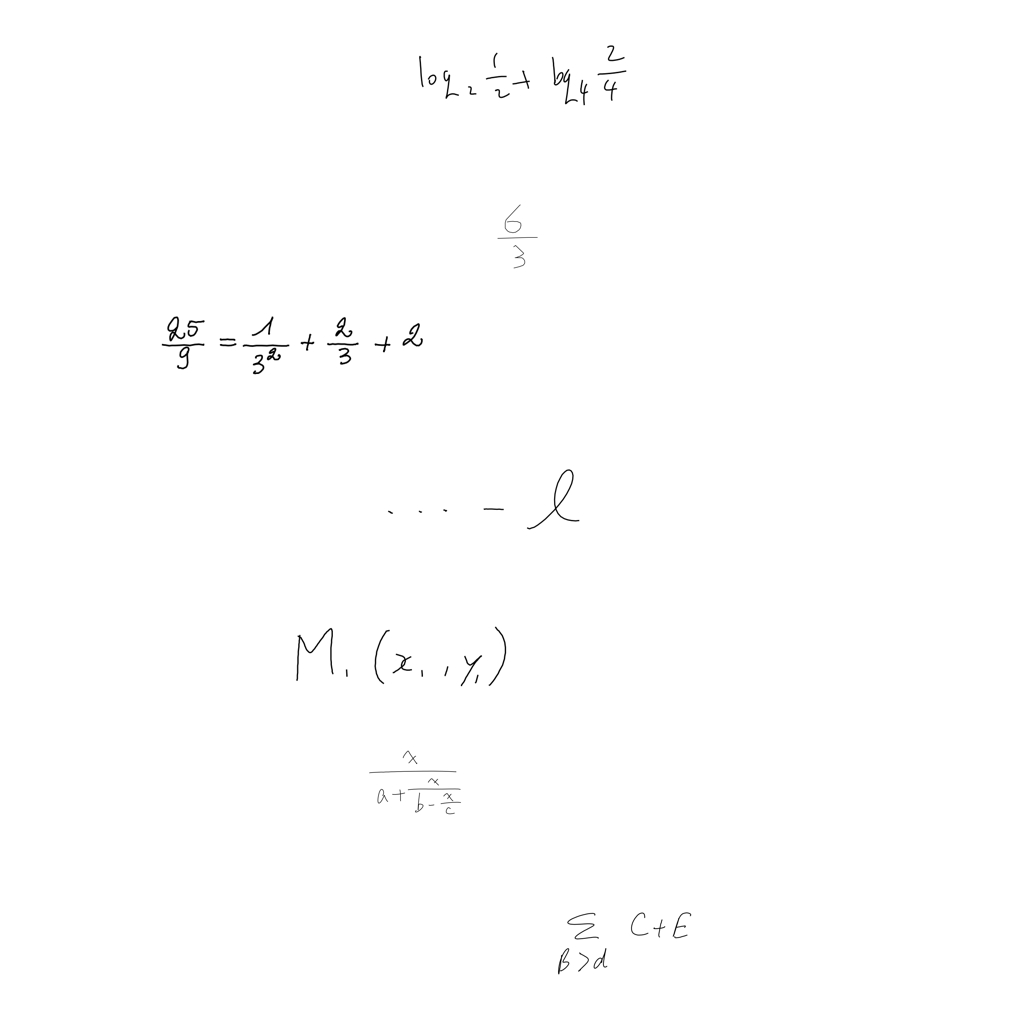 \log_2 \frac{1}{2} + \log_4 \frac{2}{4}
\frac{6}{3}
\frac{25}{9} = \frac{1}{3^2} + \frac{2}{3} + 2
\ldots - l
M_1 (x_1, y_1)
\frac{x}{a + \frac{x}{b - \frac{x}{c}}}
\sum_{B > d} C + E